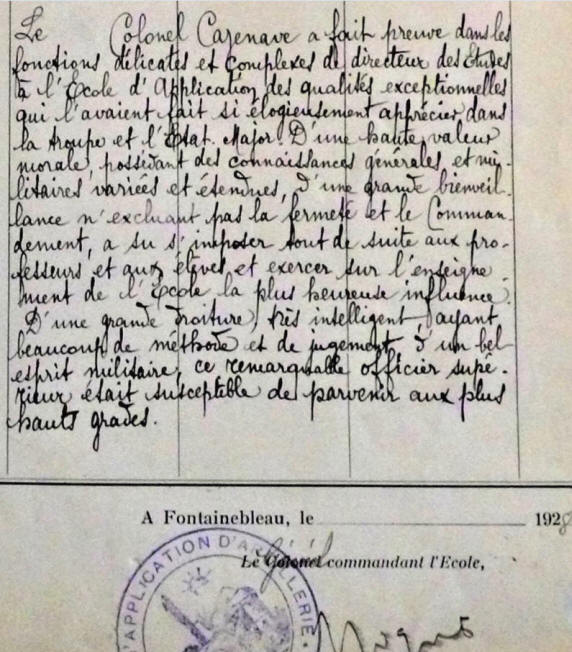 Le Colonel Cazenave a fait preuve dans les
fonctions délicates et complexes de directeur des Etudes
à l'Ecole d'Application des qualités exceptionnelles
qui l'avaient fait si élogieusement apprécier dans
la troupe et l'Etat-Major. D'une haute valeur
morale, possédant des connaissances générales et mi-
litaires variées et étendues, d'une grande bienveil-
lance n'excluant pas la fermeté et le Comman-
dement, a su s'imposer tout de suite aux pro-
fesseurs et aux élèves et exercer sur l'enseigne
ment de l'Ecole la plus heureuse influence.
D'une grande droiture, très intelligent, ayant
beaucoup de méthode et de jugement, d'un bel
esprit militaire, ce remarquable officier supé-
rieur était susceptible de parvenir aux plus
hauts grades.
A Fontainebleau, le 1928
Le Colonel Général commandant l'Ecole,
D'APPLICATION D'ARTILLERIE